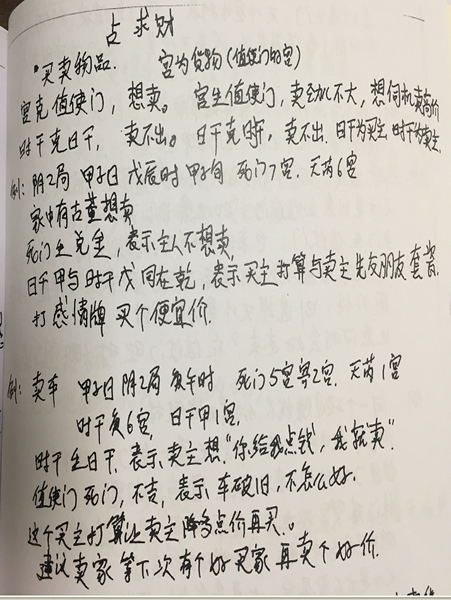 占求财
•买卖物品. 宫为货物(值使门的宫)
宫克值使门，想卖。宫生值使门，卖劲儿不大，想伺机卖高价
时干克日干，卖不出。日干克时干，卖不出. 日干为买主, 时干为卖主.
例：阴2局 甲子日 戊辰时 甲子旬 死门7宫. 天芮6宫
家中有古董想卖
死门生兑金，表示主人不想卖,
日干甲与时干戊同在乾，表示买主打算与卖主先交朋友套着.
打感情牌 买个便宜价.
例：卖车 甲子日 阴2局 庚午时 死门5宫寄2宫. 天芮1宫
时干庚6宫，日干甲1宫.
时干生日干. 表示卖主想“你给我点钱，我就卖”
值使门死门, 不吉，表示车破旧，不怎么好.
这个买主打算让卖主降多点价再买.。
建议卖家等下次有个好买家再卖下好价.